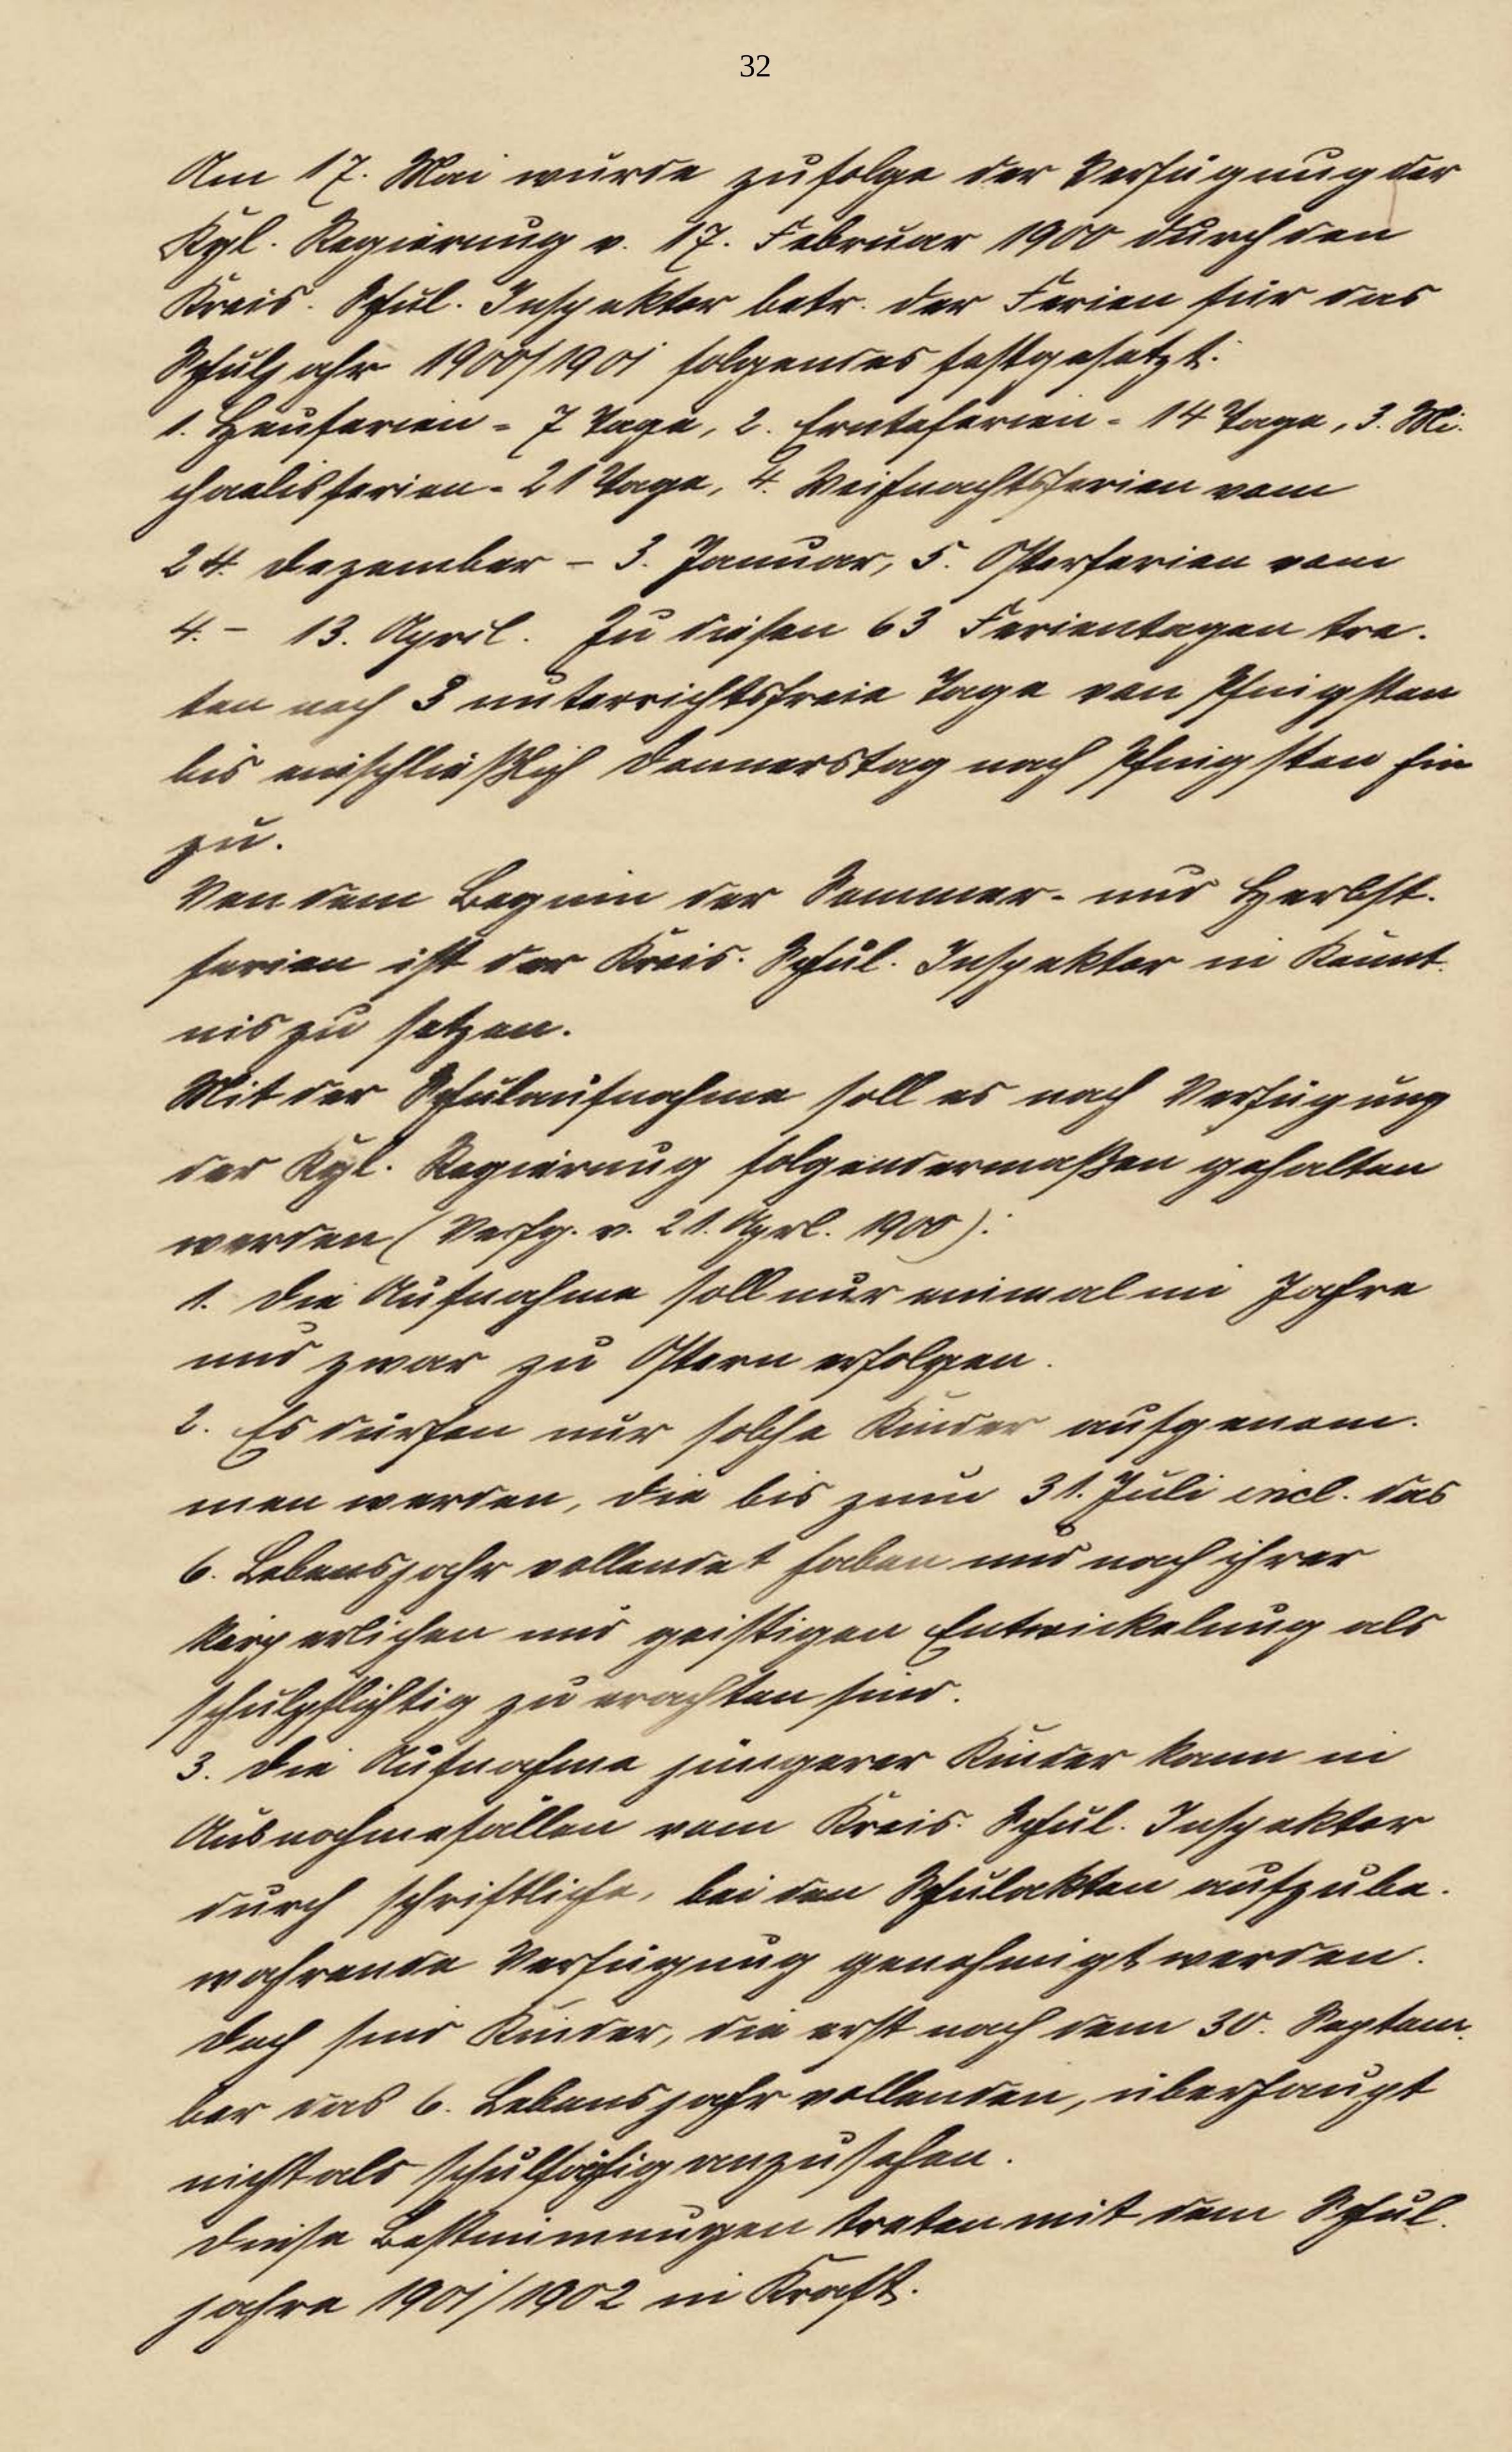 32
Am 17. Mai wurde zufolge der Verfügung der
Kgl. Regierung v. 17. Februar 1900 durch den
Kreis-Schul-Inspektor betr. der Ferien für das
Schuljahr 1900/1901 folgendes festgesetzt:
1. Heuferien = 7 Tage, 2. Ernteferien = 14 Tage, 3. Mi-
chaelisferien = 21 Tage, 4. Weihnachtsferien vom
24. Dezember – 3. Januar, 5. Osterferien vom
4. – 13. April. Zu diesen 63 Ferientagen tre-
ten noch 3 unterrichtsfreie Tage von Pfingsten
bis einschließlich Donnerstag nach Pfingsten hin
zu.
Von dem Beginn der Sommer- und Herbst-
ferien ist der Kreis-Schul-Inspektor in Kennt-
nis zu setzen.
Mit der Schulaufnahme soll es nach Verfügung
der Kgl. Regierung folgendermaßen gehalten
werden (Verfg. v. 21. Aprl. 1900):
1. Die Aufnahme soll nur einmal im Jahre
und zwar zu Ostern erfolgen.
2. Es dürfen nur solche Kinder aufgenom-
men werden, die bis zum 31. Juli incl. das
6. Lebensjahr vollendet haben und nach ihrer
körperlichen und geistigen Entwickelung als
schulpflichtig zu erachten sind.
3. Die Aufnahme jüngerer Kinder kann in
Ausnahmefällen vom Kreis-Schul-Inspektor
durch schriftliche, bei den Schulakten aufzube-
wahrende Verfügung genehmigt werden.
Doch sind Kinder, die erst nach dem 30. Septem-
ber das 6. Lebensjahr vollenden, überhaupt
nicht als schulfähig anzusehen.
Diese Bestimmungen treten mit dem Schul-
jahre 1901/1902 in Kraft.